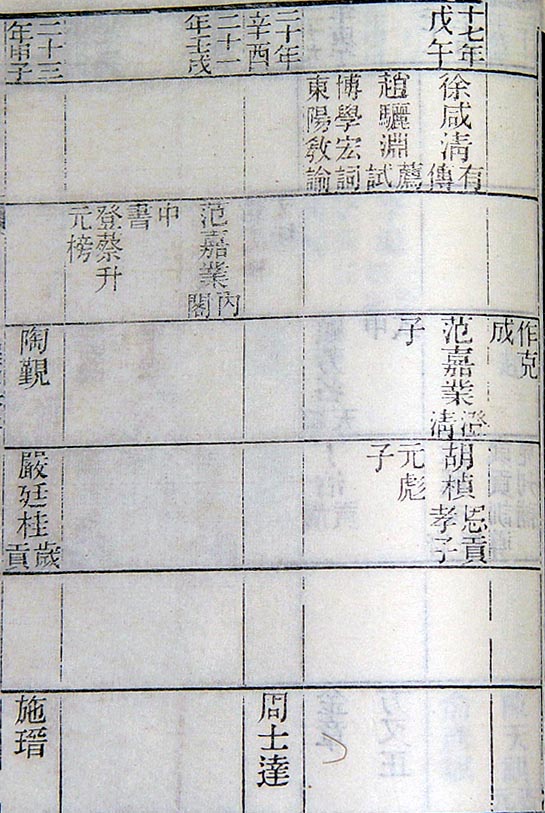 作克
成
十七年
戊午
徐咸清有
傳
趙驪淵薦
試
博學宏詞
東陽教諭
范嘉業澄
清
子
胡楨恩貢
孝子
元彪
子
二十年
辛酉
周士達
二十一
年壬戌
范嘉業內
閣
中
書
登蔡升
元榜
二十三
年甲子
陶覲
嚴廷桂歲
貢
施瑨